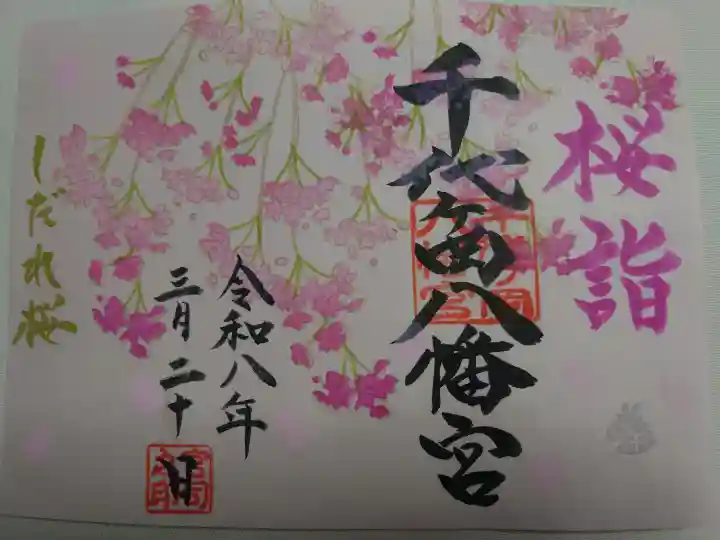 桜詣
千代ヶ岡八幡宮
令和八年
三月二十日
しだれ桜